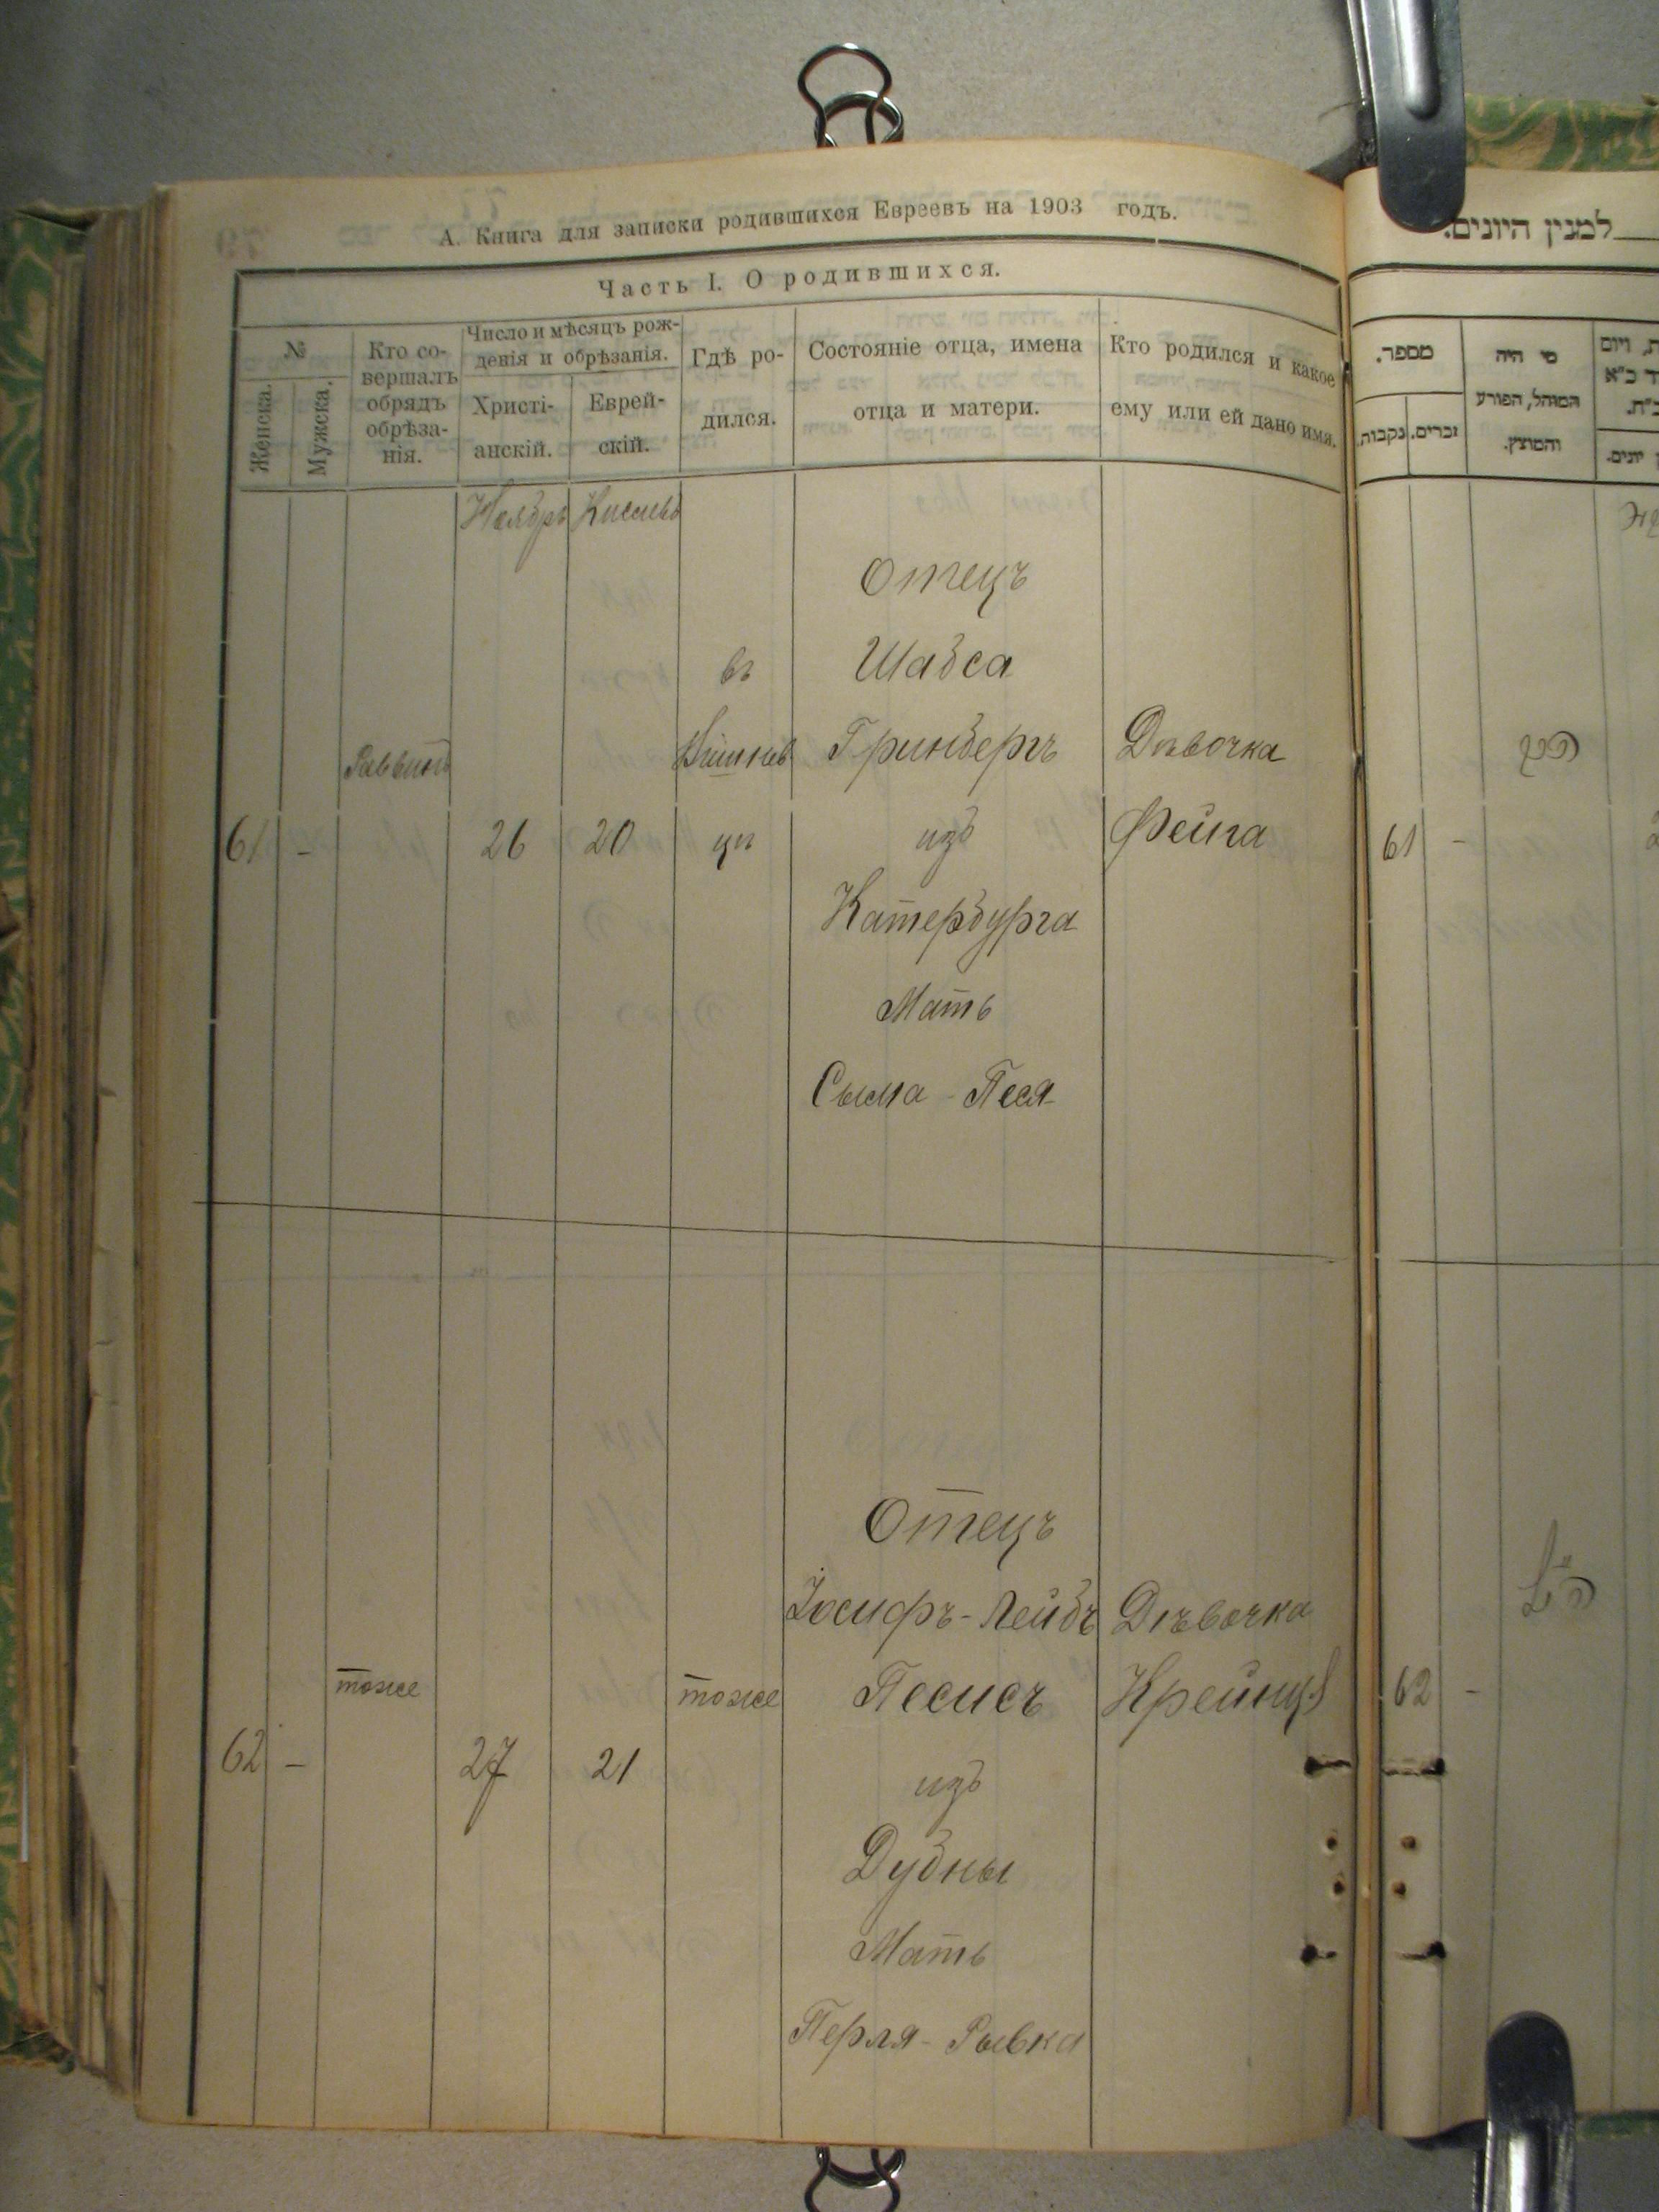 А. Книга для записки родившихся Евреевъ на 1903 годъ.
Часть I. О родившихся.
№
Женска.
Мужска.
Кто со-
вершалъ
обрядъ
обрѣза-
нія.
Число и мѣсяцъ рож-
денія и обрѣзанія.
Христі-
анскій.
Еврей-
скій.
Гдѣ ро-
дился.
Состояніе отца, имена
отца и матери.
Кто родился и какое
ему или ей дано имя.
Ноябрь Кислевъ
Отецъ
въ Шабса
Раввинъ Вишнев Гринбергъ Дѣвочка
61 - 26 20 цѣ изъ Фейга
Катербурга
Мать
Сыма - Песя
Отецъ
Іосифъ-Лейбъ Дѣвочка
тоже тоже Песисъ Крейнця
62 - 27 21 изъ
Дубны
Мать
Перля - Рывка
למנין היונים.
מספר.
נקבות.
זכרים.
מי היה
המוהל, הפורע
והמוצץ.
61 -
62 -